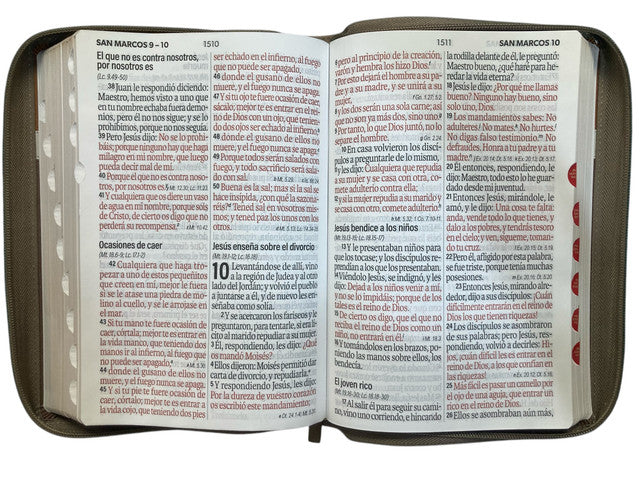 SAN MARCOS 9 – 10
1510
El que no es contra nosotros,
por nosotros es
(Lc. 9.49-50)
38 Juan le respondió diciendo:
Maestro, hemos visto a uno que
en tu nombre echaba fuera demo-
nios, pero él no nos sigue; y se lo
prohibimos, porque no nos seguía.
39 Pero Jesús dijo: No se lo prohi-
báis; porque ninguno hay que haga
milagro en mi nombre, que luego
pueda decir mal de mí.
40 Porque el que no es contra noso-
tros, por nosotros es.
41 Y cualquiera que os diere un vaso
de agua en mi nombre, porque sois
de Cristo, de cierto os digo que no
perderá su recompensa.
Ocasiones de caer
(Mt. 18.6-9; Lc. 17.1-2)
42 Cualquiera que haga tro-
pezar a uno de estos pequeñitos
que creen en mí, mejor le fuera
si se le atase una piedra de mo-
lino al cuello, y se le arrojase en
el mar.
43 Si tu mano te fuere ocasión de
caer, córtala; mejor te es entrar en
la vida manco, que teniendo dos
manos ir al infierno, al fuego que
no puede ser apagado,
44 donde el gusano de ellos no
muere, y el fuego nunca se apaga.
45 Y si tu pie te fuere ocasión de
caer, córtalo; mejor te es entrar a
la vida cojo, que teniendo dos pies
ser echado en el infierno, al fuego
que no puede ser apagado,
46 donde el gusano de ellos no
muere, y el fuego nunca se apaga.
47 Y si tu ojo te fuere ocasión de caer,
sácalo; mejor te es entrar en el reino
de Dios con un ojo, que teniendo
dos ojos ser echado al infierno,
48 donde el gusano de ellos no
muere, y el fuego nunca se apaga.
49 Porque todos serán salados con
fuego, y todo sacrificio será sala-
do con sal.
50 Buena es la sal; mas si la sal se
hace insípida, ¿con qué la sazona-
réis? Tened sal en vosotros mis-
mos; y tened paz los unos con los
otros.
Jesús enseña sobre el divorcio
(Mt. 19.1-12; Lc. 16.18)
10 Levantándose de allí, vino
a la región de Judea y al otro
lado del Jordán; y volvió el pueblo
a juntarse a él, y de nuevo les en-
señaba como solía.
2 Y se acercaron los fariseos y le
preguntaron, para tentarle, si era lí-
cito al marido repudiar a su mujer.
3 Él, respondiendo, les dijo: ¿Qué
os mandó Moisés?
4 Ellos dijeron: Moisés permitió dar
carta de divorcio, y repudiarla.
5 Y respondiendo Jesús, les dijo:
Por la dureza de vuestro corazón
os escribió este mandamiento;
1511
SAN MARCOS 10
6 pero al principio de la creación,
varón y hembra los hizo Dios.
7 Por esto dejará el hombre a su pa-
dre y a su madre, y se unirá a su
mujer,
8 y los dos serán una sola carne; así
que no son ya más dos, sino uno.
9 Por tanto, lo que Dios juntó, no lo
separe el hombre.
10 En casa volvieron los discí-
pulos a preguntarle de lo mismo,
11 y les dijo: Cualquiera que repudia a
su mujer y se casa con otra, co-
mete adulterio contra ella;
12 y si la mujer repudia a su marido
y se casa con otro, comete adulterio.
Jesús bendice a los niños
(Mt. 19.13-15; Lc. 18.15-17)
13 Y le presentaban niños para
que los tocase; y los discípulos re-
prendían a los que los presentaban.
14 Viéndolo Jesús, se indignó, y les
dijo: Dejad a los niños venir a mí,
y no se lo impidáis; porque de los
tales es el reino de Dios.
15 De cierto os digo, que el que no
reciba el reino de Dios como un
niño, no entrará en él.
16 Y tomándolos en los brazos, po-
niendo las manos sobre ellos, los
bendecía.
El joven rico
(Mt. 19.16-30; Lc. 18.18-30)
17 Al salir él para seguir su cami-
no, vino uno corriendo, e hincando
la rodilla delante de él, le preguntó:
Maestro bueno, ¿qué haré para he-
redar la vida eterna?
18 Jesús le dijo: ¿Por qué me llamas
bueno? Ninguno hay bueno, sino
solo uno, Dios.
19 Los mandamientos sabes: No
adulteres. No mates. No hurtes.
No digas falso testimonio. No
defraudes. Honra a tu padre y a tu
madre.
20 Él entonces, respondiendo, le
dijo: Maestro, todo esto lo he guar-
dado desde mi juventud.
21 Entonces Jesús, mirándole, le
amó, y le dijo: Una cosa te falta:
anda, vende todo lo que tienes, y
dalo a los pobres, y tendrás tesoro
en el cielo; y ven, sígueme, toman-
do tu cruz.
22 Pero él, afligido por esta palabra,
se fue triste, porque tenía muchas
posesiones.
23 Entonces Jesús, mirando alre-
dedor, dijo a sus discípulos: ¡Cuán
difícilmente entrarán en el reino de
Dios los que tienen riquezas!
24 Los discípulos se asombraron
de sus palabras; pero Jesús, res-
pondiendo, volvió a decirles: Hi-
jos, ¡cuán difícil les es entrar en el
reino de Dios, a los que confían en
las riquezas!
25 Más fácil es pasar un camello por
el ojo de una aguja, que entrar un
rico en el reino de Dios.
26 Ellos se asombraban aún más,